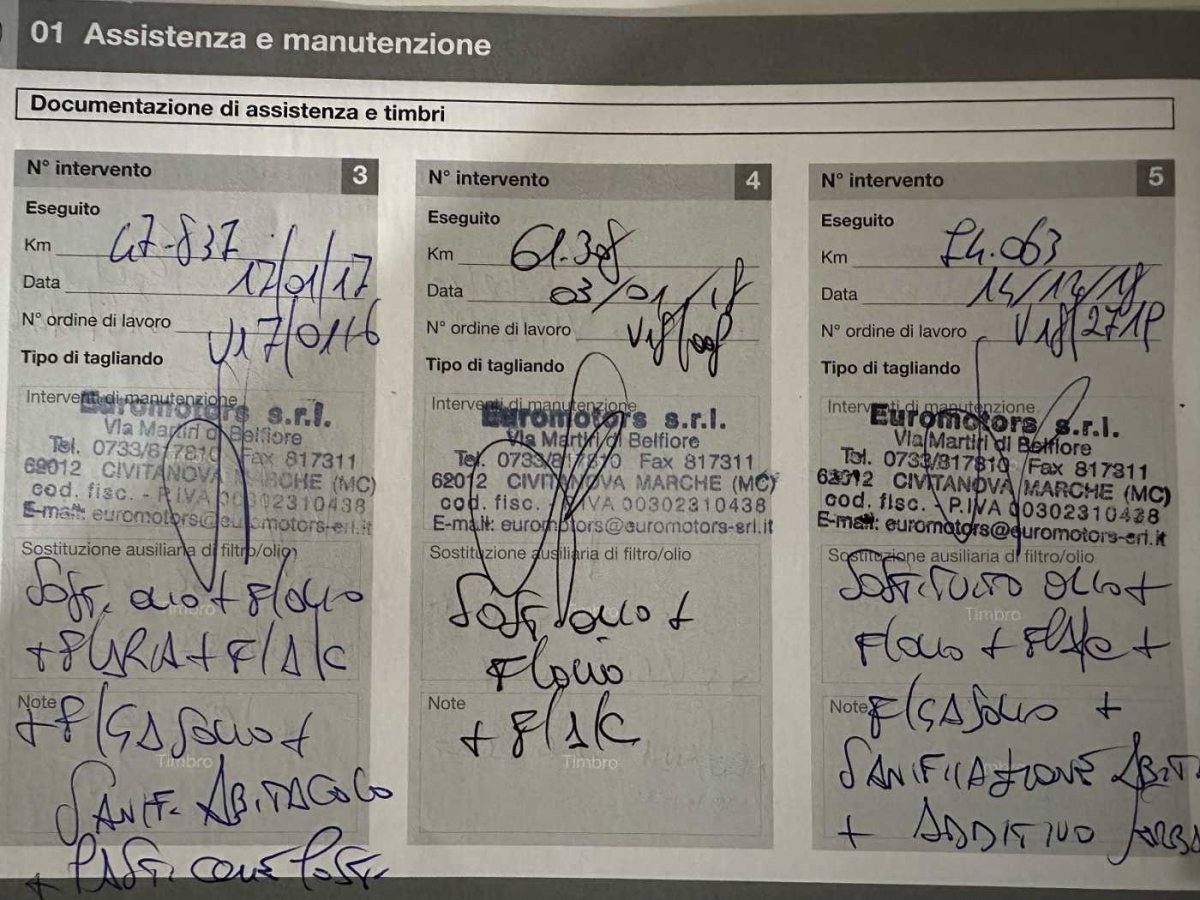 01 Assistenza e manutenzione
Documentazione di assistenza e timbri
N° intervento 3
Eseguito
Km 47.837
Data 17/01/17
N° ordine di lavoro V17/0116
Tipo di tagliando
Interventi di manutenzione
Euromotors s.r.l.
Via Martiri di Belfiore
Tel. 0733/817810 Fax 817311
62012 CIVITANOVA MARCHE (MC)
cod. fisc. - P.IVA 00302310438
E-mail: euromotors@euromotors-srl.it
Sostituzione ausiliaria di filtro/olio
Sost. olio + F/olio
Timbro
+ F/ARIA + F/A/C
Note
+ F/GASOLIO +
Timbro
SANIF. ABITACOLO
+ PAST.
N° intervento 4
Eseguito
Km 61.308
Data 03/01/18
N° ordine di lavoro
Tipo di tagliando
Interventi di manutenzione
Euromotors s.r.l.
Via Martiri di Belfiore
Tel. 0733/817810 Fax 817311
62012 CIVITANOVA MARCHE (MC)
cod. fisc. - P.IVA 00302310438
E-mail: euromotors@euromotors-srl.it
Sostituzione ausiliaria di filtro/olio
Sost. olio +
Timbro
F/olio
Note
+ F/A/C
Timbro
N° intervento 5
Eseguito
Km 74.063
Data 14/12/18
N° ordine di lavoro V18/2718
Tipo di tagliando
Interventi di manutenzione
Euromotors s.r.l.
Via Martiri di Belfiore
Tel. 0733/817810 Fax 817311
62012 CIVITANOVA MARCHE (MC)
cod. fisc. - P.IVA 00302310438
E-mail: euromotors@euromotors-srl.it
Sostituzione ausiliaria di filtro/olio
SOSTITUITO OLIO +
Timbro
F/olio + F/A/C +
Note
F/GASOLIO +
SANIFICAZIONE ABIT
+ ADDITIVO